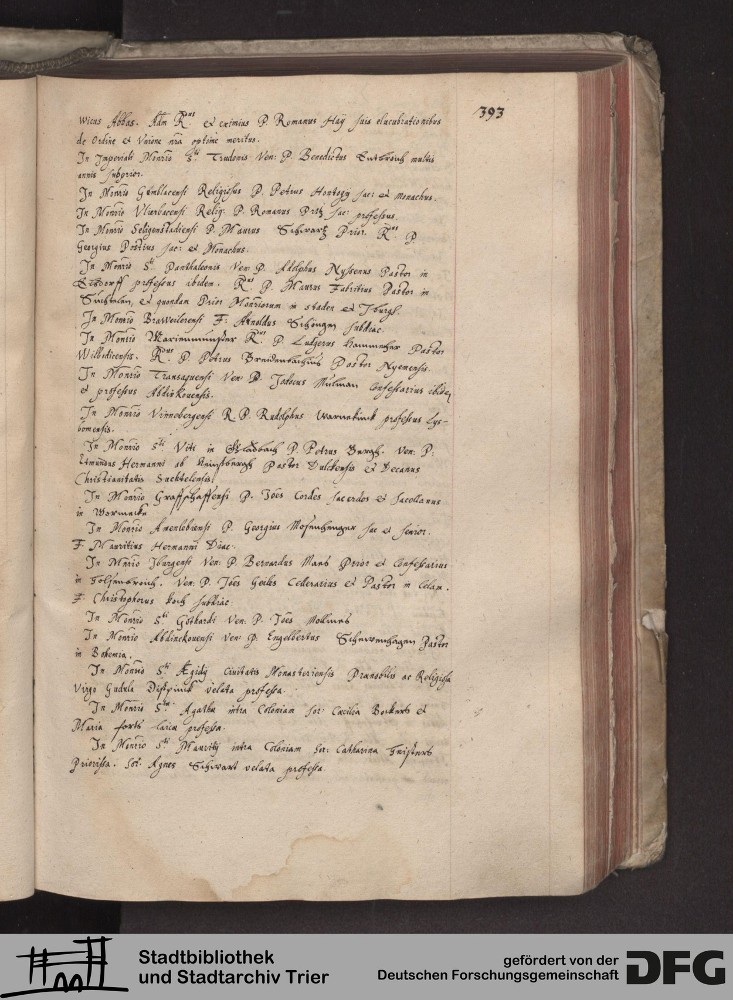 393
wicus Abbas. Adm R.dus et eximius P. Romanus Haÿ suis elucubrationibus
de Ordine et Unione nrā optime meritus.
In Imperiali Monrio S.ti Trudonis Ven: P. Benedictus multis
annis subprior.
In Monrio Gemblacensi Religiosus P. Petrus Hontoy sac: et monachus.
In Monrio Vlierbacensi Relig. P. Romanus sac: professus.
In Monrio Seligenstadiensi P. Maurus Schwartz Prior. R.dus P.
Georgius sac: et Monachus.
In Monrio S.ti Panthaleonis Ven: P. Adolphus Nyssenus Pastor in
professus ibidem. R.dus P. Maurus Fabritius Pastor in
Suchtelen, et quondam Prior Monriorum in staden et Iburgh.
In Monrio Brawilerensi F: Arnoldus subdiac.
In Monrio Marienmünster R.dus P. Ludgerus Hammecher Pastor
R.dus P. Petrus Breidenbachius Pastor Nyemensis.
In Monrio Transaquensi Ven: P. Jodocus Mulman Confessarius ibidē
et professus Abdinkovensis.
In Monrio Vinnebergensi R. P. Rudolphus professus Lys-
bornensis.
In Monrio S.ti Viti in Gladbach P. Petrus Bergh. Ven: P:
Edmundus Hermanni ab Pastor Dulkensis et Decanus
Christianitatis Suchtelensis.
In Monrio Graffschaffensi P. Joēs Cordes sacerdos et sacellanus
in
In Monrio P. Georgius sac et senior.
F Mauritius Hermanni Diac.
In Mnrio Iburgensi Ven: P. Bernardus Maes Prior et Confessarius
in Ven: P. Joēs Geiles Cellerarius et Pastor in
F. Christophorus Koch subdiac.
In Monrio S.ti Gothardi Ven: P. Joēs Mollmes
In Monrio Abdinckovensi Ven: P. Engelbertus Pastor
in Bohemia.
In Monrio S.ti Ægidij Civitatis Monasteriensis Prænobilis ac Religiosa
Virgo Gudula velata professa.
In Monrio S.tæ Agathæ intra Coloniam sor: Cæcilia Beckers et
Maria laica professa.
In Monrio S.ti Mauritij intra Coloniam sor: Catharina
Priorissa. sor: Agnes Schwart velata professa.
Stadtbibliothek
und Stadtarchiv Trier
gefördert von der
Deutschen Forschungsgemeinschaft
DFG